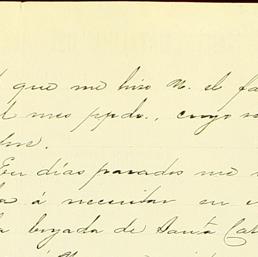 que me hizo N. el fa
l mes ppdo., cuyo
bre.
En días pasados me
a á necesitar en
a brigada de Santa Cat